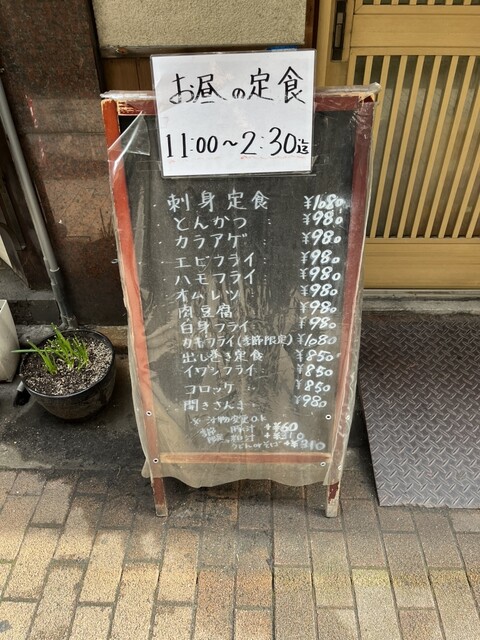 お昼の定食
11:00～2:30迄
刺身定食 ¥1080
とんかつ ¥980
カラアゲ ¥980
エビフライ ¥980
ハモフライ ¥980
オムレツ ¥980
肉豆腐 ¥980
白身フライ ¥980
カキフライ(季節限定) ¥1080
出し巻き定食 ¥850
イワシフライ ¥850
コロッケ ¥850
開きさんま ¥980
※汁物変更O.K
豚汁 +¥60
粕汁